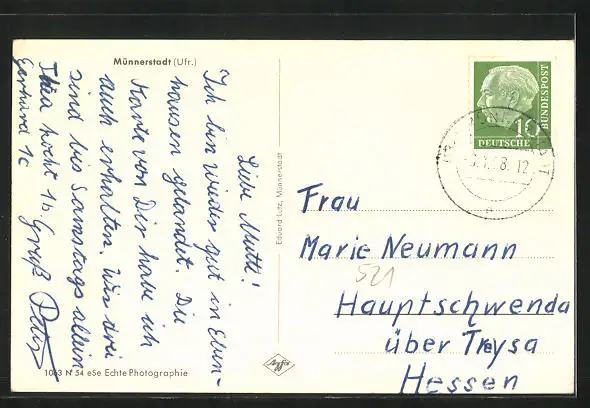 Münnerstadt (Ufr.)
Liebe Mutti!
Ich bin wieder gut in Eben-
hausen gelandet. Die
Karte von Dir habe ich
auch erhalten. Wir drei
sind bis Samstags allein
hockt 1b Gruß Peter
Gerhard 1c
1083 N 54 eSe Echte Photographie
Eduard Lutz, Münnerstadt
Agfa
10
DEUTSCHE
BUNDESPOST
58. 12
Frau
Marie Neumann
521
Hauptschwenda
über Treysa
Hessen